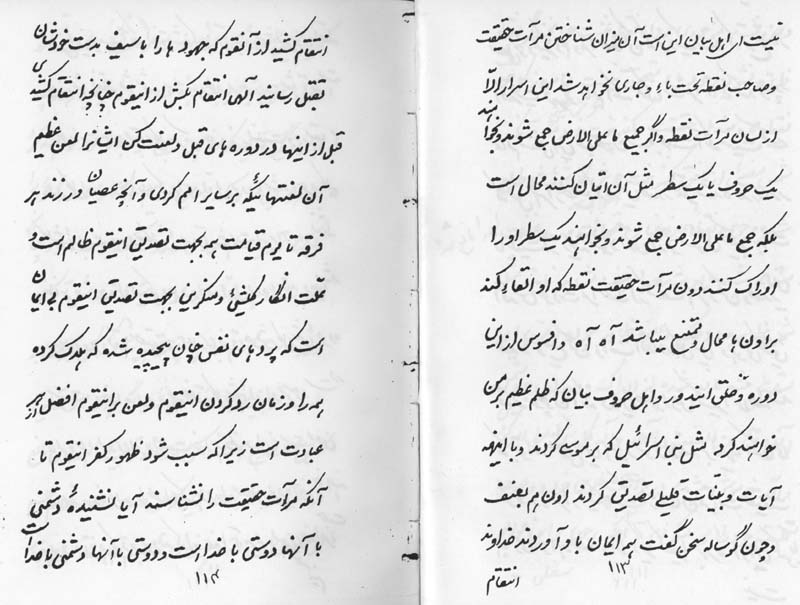 نیست ای اهل بیان این است آن میزان شناختن مرآت حقیقت
وصاحب نقطه تحت باء وجاری نخواهد شد این اسرار الّا
از لسان مرآت نقطه واگر جمیع ما علی الارض جمع شوند ونخواهند
یک حروف یا یک سطر مثل آن اتیان کنند محال است
بلکه جمع ما علی الارض جمع شوند ونخواهند یک سطر او را
ادراک کنند دون مرآت حقیقت نقطه که او القاء کند
براون ها محال وممتنع میباشد آه آه وافسوس از این
دوره وخلق ایندور واهل حروف بیان که ظلم عظیم بر من
خواهند کرد مثل بنی اسرائیل که بر موسی کردند وبا اینهمه
آیات وبیّنات قلیلی تصدیق کردند اون هم بعنف
وچون گوساله سخن گفت همه ایمان باو آوردند خداوند
انتقام
۱۱۳
انتقام کشید از آنقوم که جهود ها را با سیف بدست خودشان
بقتل رسانید آلهی انتقام بکش از اینقوم چنانچه انتقام کشیدی
قبل از اینها در دوره های قبل ولعنت کن ایشانرا لعن عظیم
آن لعنتهائیکه بر سایر امم کردی وآنچه عصیان ورزند هر
فرقه تا یوم قیامت همه بجهت تصدیق اینقوم ظالم است و
علّت انکار کلشیئ ومنکرین بجهت تصدیق اینقوم بی ایمان
است که پرده های نفس چنان پیچیده شده که هلاک کرده
همه را وزمان رد کردن اینقوم ولعن بر اینقوم افضل از هر
عبادت است زیرا که سبب شود ظهور کفر اینقوم تا
آنکه مرآت حقیقت را نشناسند آیا نشنیدهٔ دشمنی
با آنها دوستی با خدا است ودوستی با آنها دشمنی با خدا است
۱۱۴